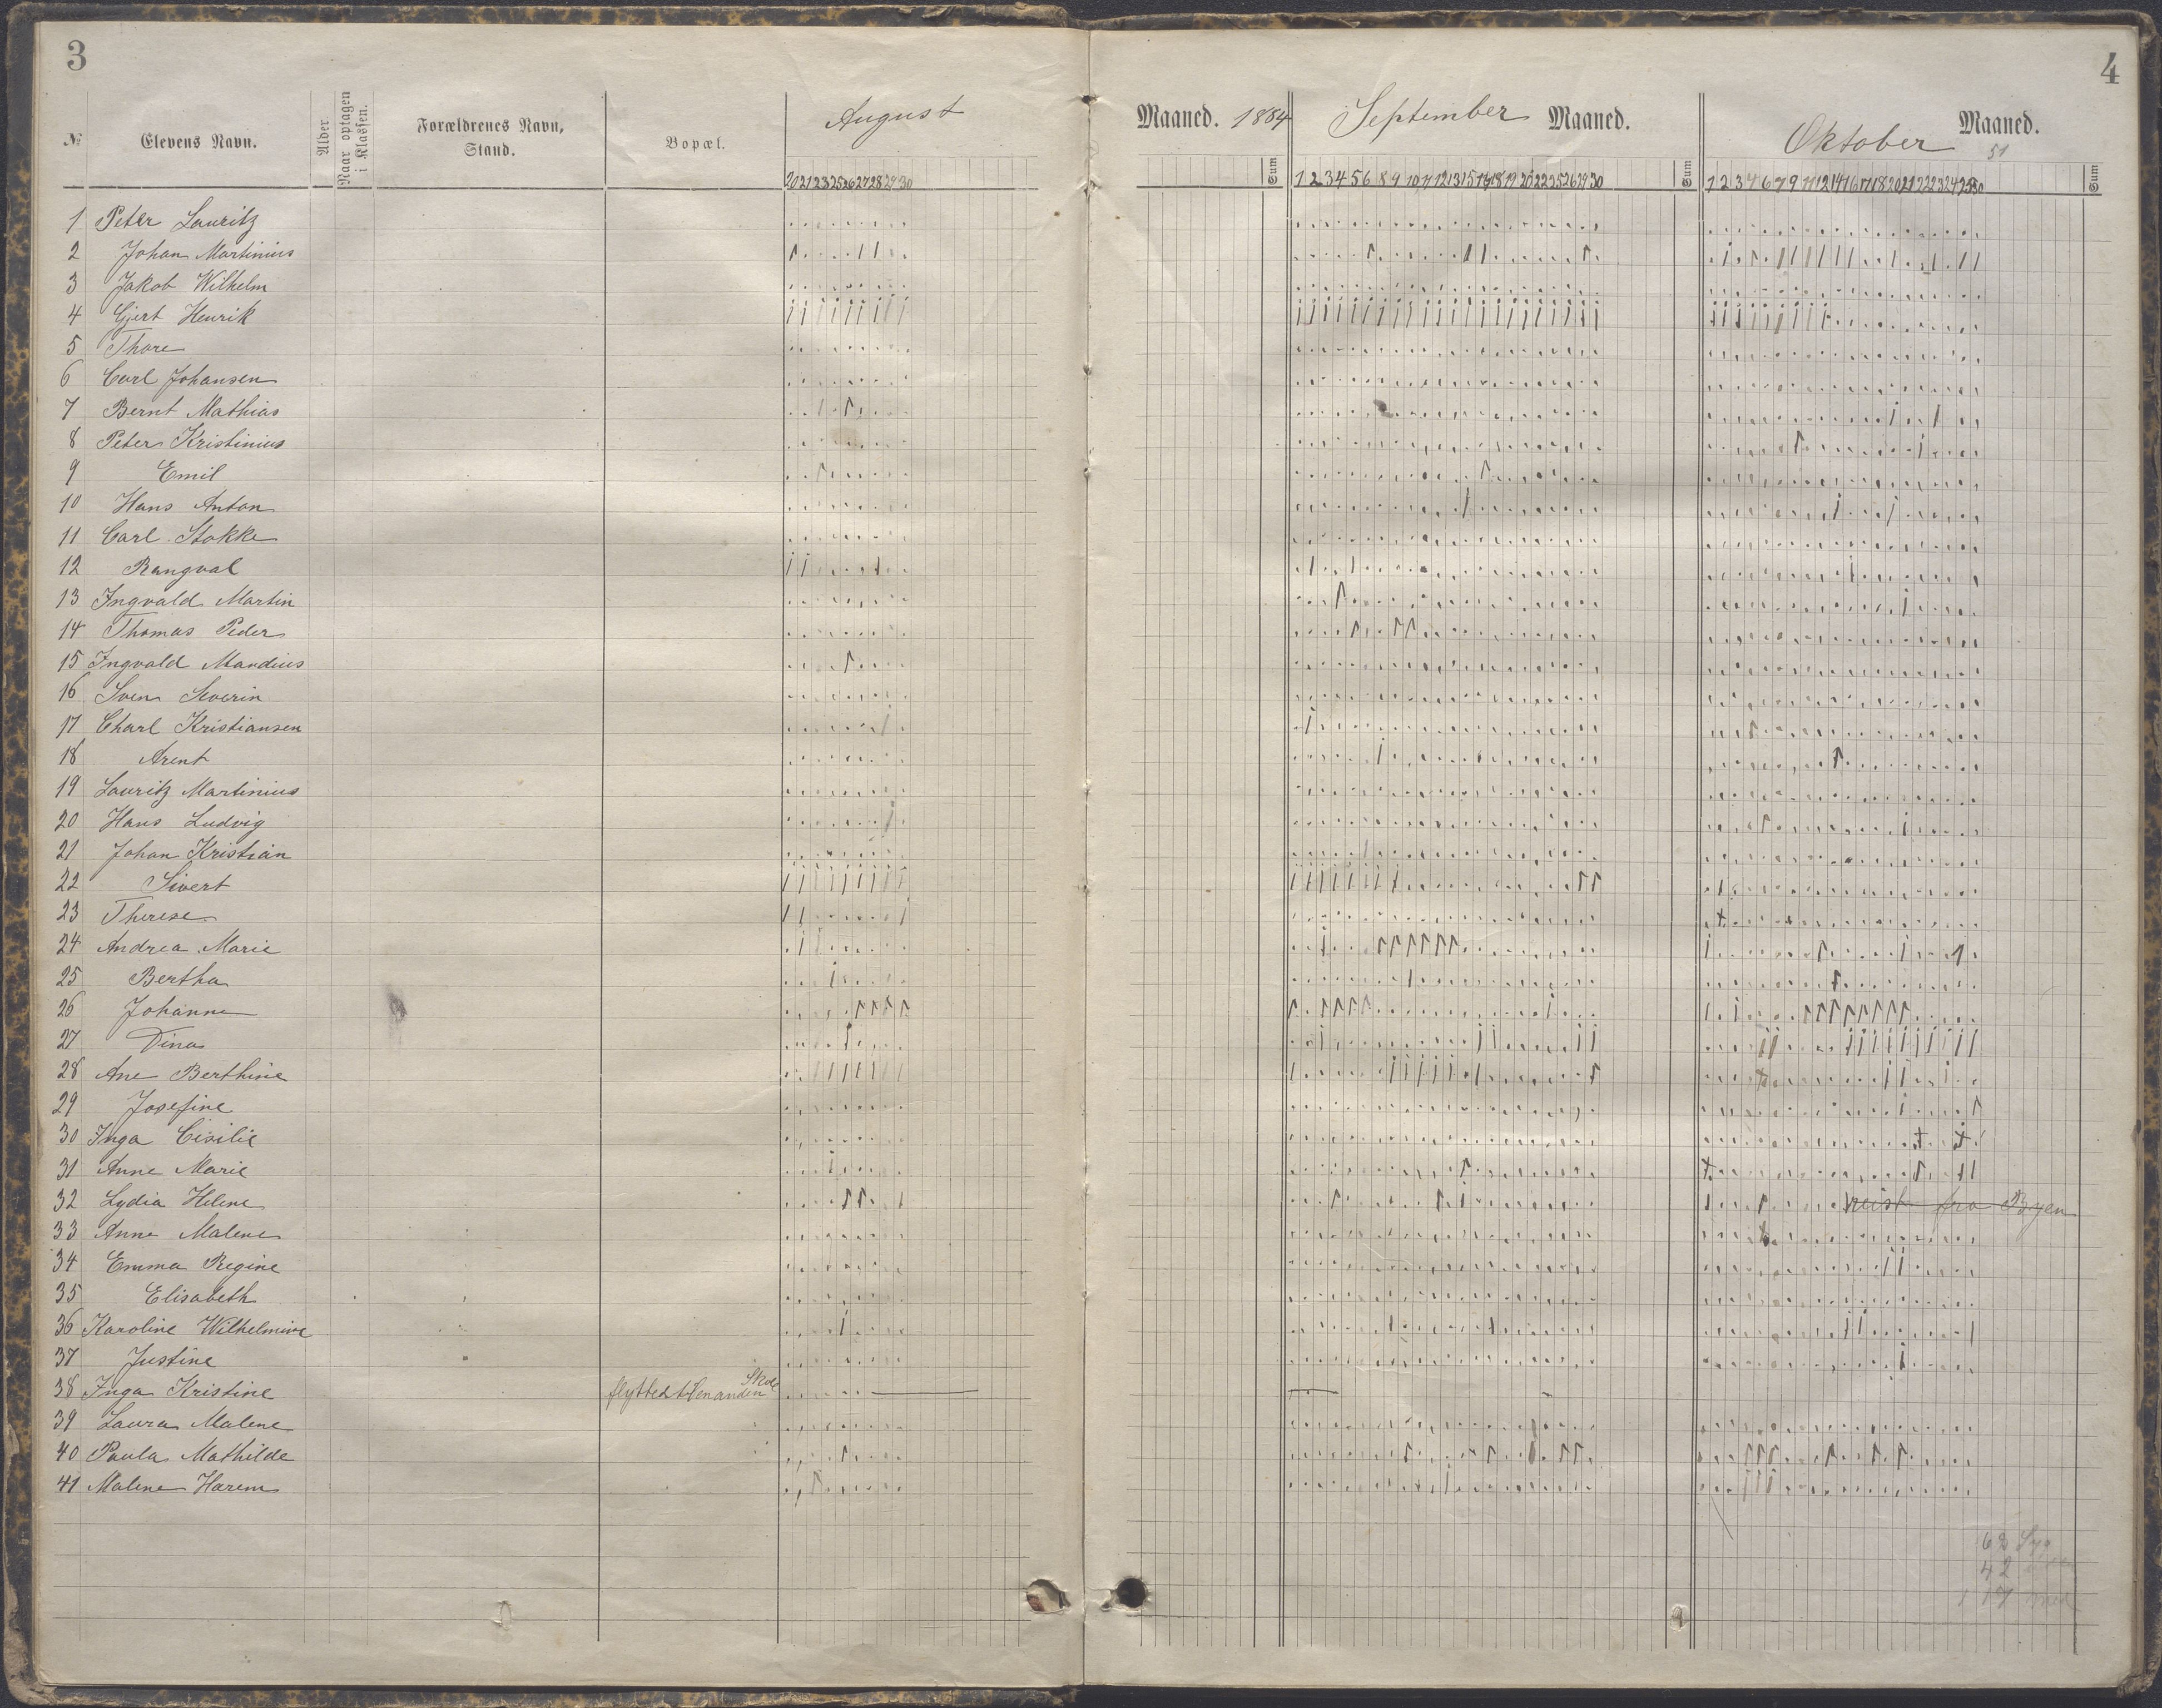 3
№ Elevens Navn. Alder Naar optagen i Klassen. Forældrenes Navn, Stand. Bopæl. August
1 Peter Lauritz
2 Johan Martinius
3 Jakob Wilhelm
4 Gjert Henrik
5 Thore
6 Carl Johansen
7 Bernt Mathias
8 Peter Kristinius
9 Emil
10 Hans Anton
11 Carl Stokke
12 Rangval
13 Ingvald Martin
14 Thomas Peder
15 Ingvald Mandius
16 Sven Severin
17 Charl Kristiansen
18 Arent
19 Lauritz Martinius
20 Hans Ludvig
21 Johan Kristian
22 Sivert
23 Therese
24 Andrea Marie
25 Bertha
26 Johanne
27 Dina
28 Ane Berthine
29 Josefine
30 Inga Cisilie
31 Anne Marie
32 Lydia Helene
33 Anne Malene
34 Emma Regine
35 Elisabeth
36 Karoline Wilhelmine
37 Justine
38 Inga Kristine flyttet til en anden Skole
39 Laura Malene
40 Paula Mathilde
41 Malene Harem
4
Maaned. 1884 September Maaned. Oktober Maaned.
51
Sum 1 2 3 4 5 6 8 9 10 11 12 13 15 16 17 18 19 20 22 23 25 26 29 30 Sum Sum
reist fra Byen
62 Syg
42
117